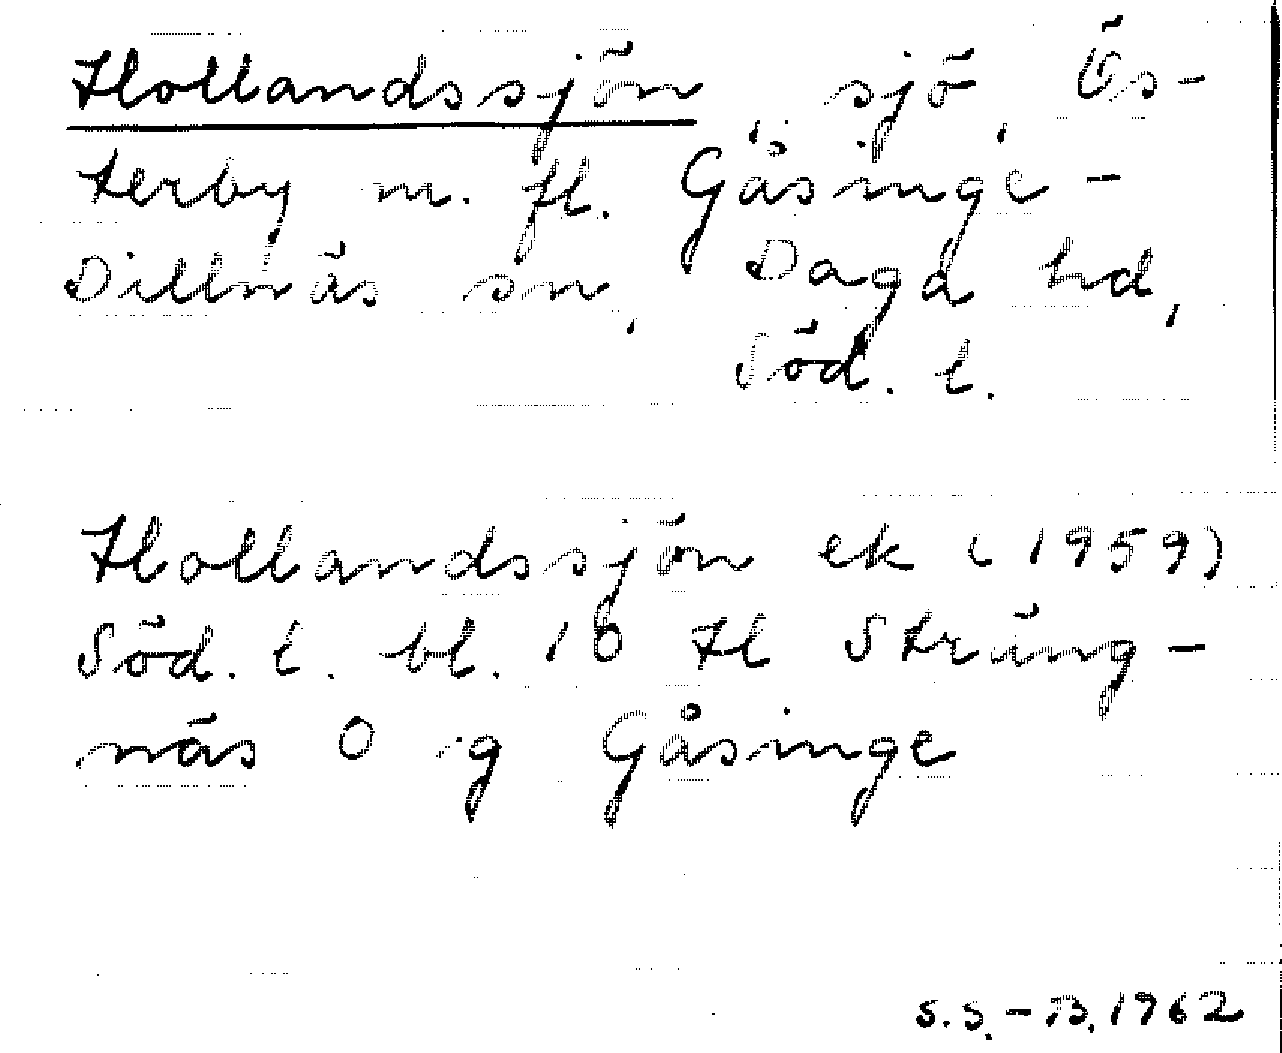 Hollandssjön, sjö, Ös-
terby m. fl. Gåsinge-
Dillnäs sn, Daga hd,
Söd. l.
Hollandssjön ek (1959)
Söd. l. bl. 10 H Sträng-
näs O ig Gåsinge
S.S.-B. 1962